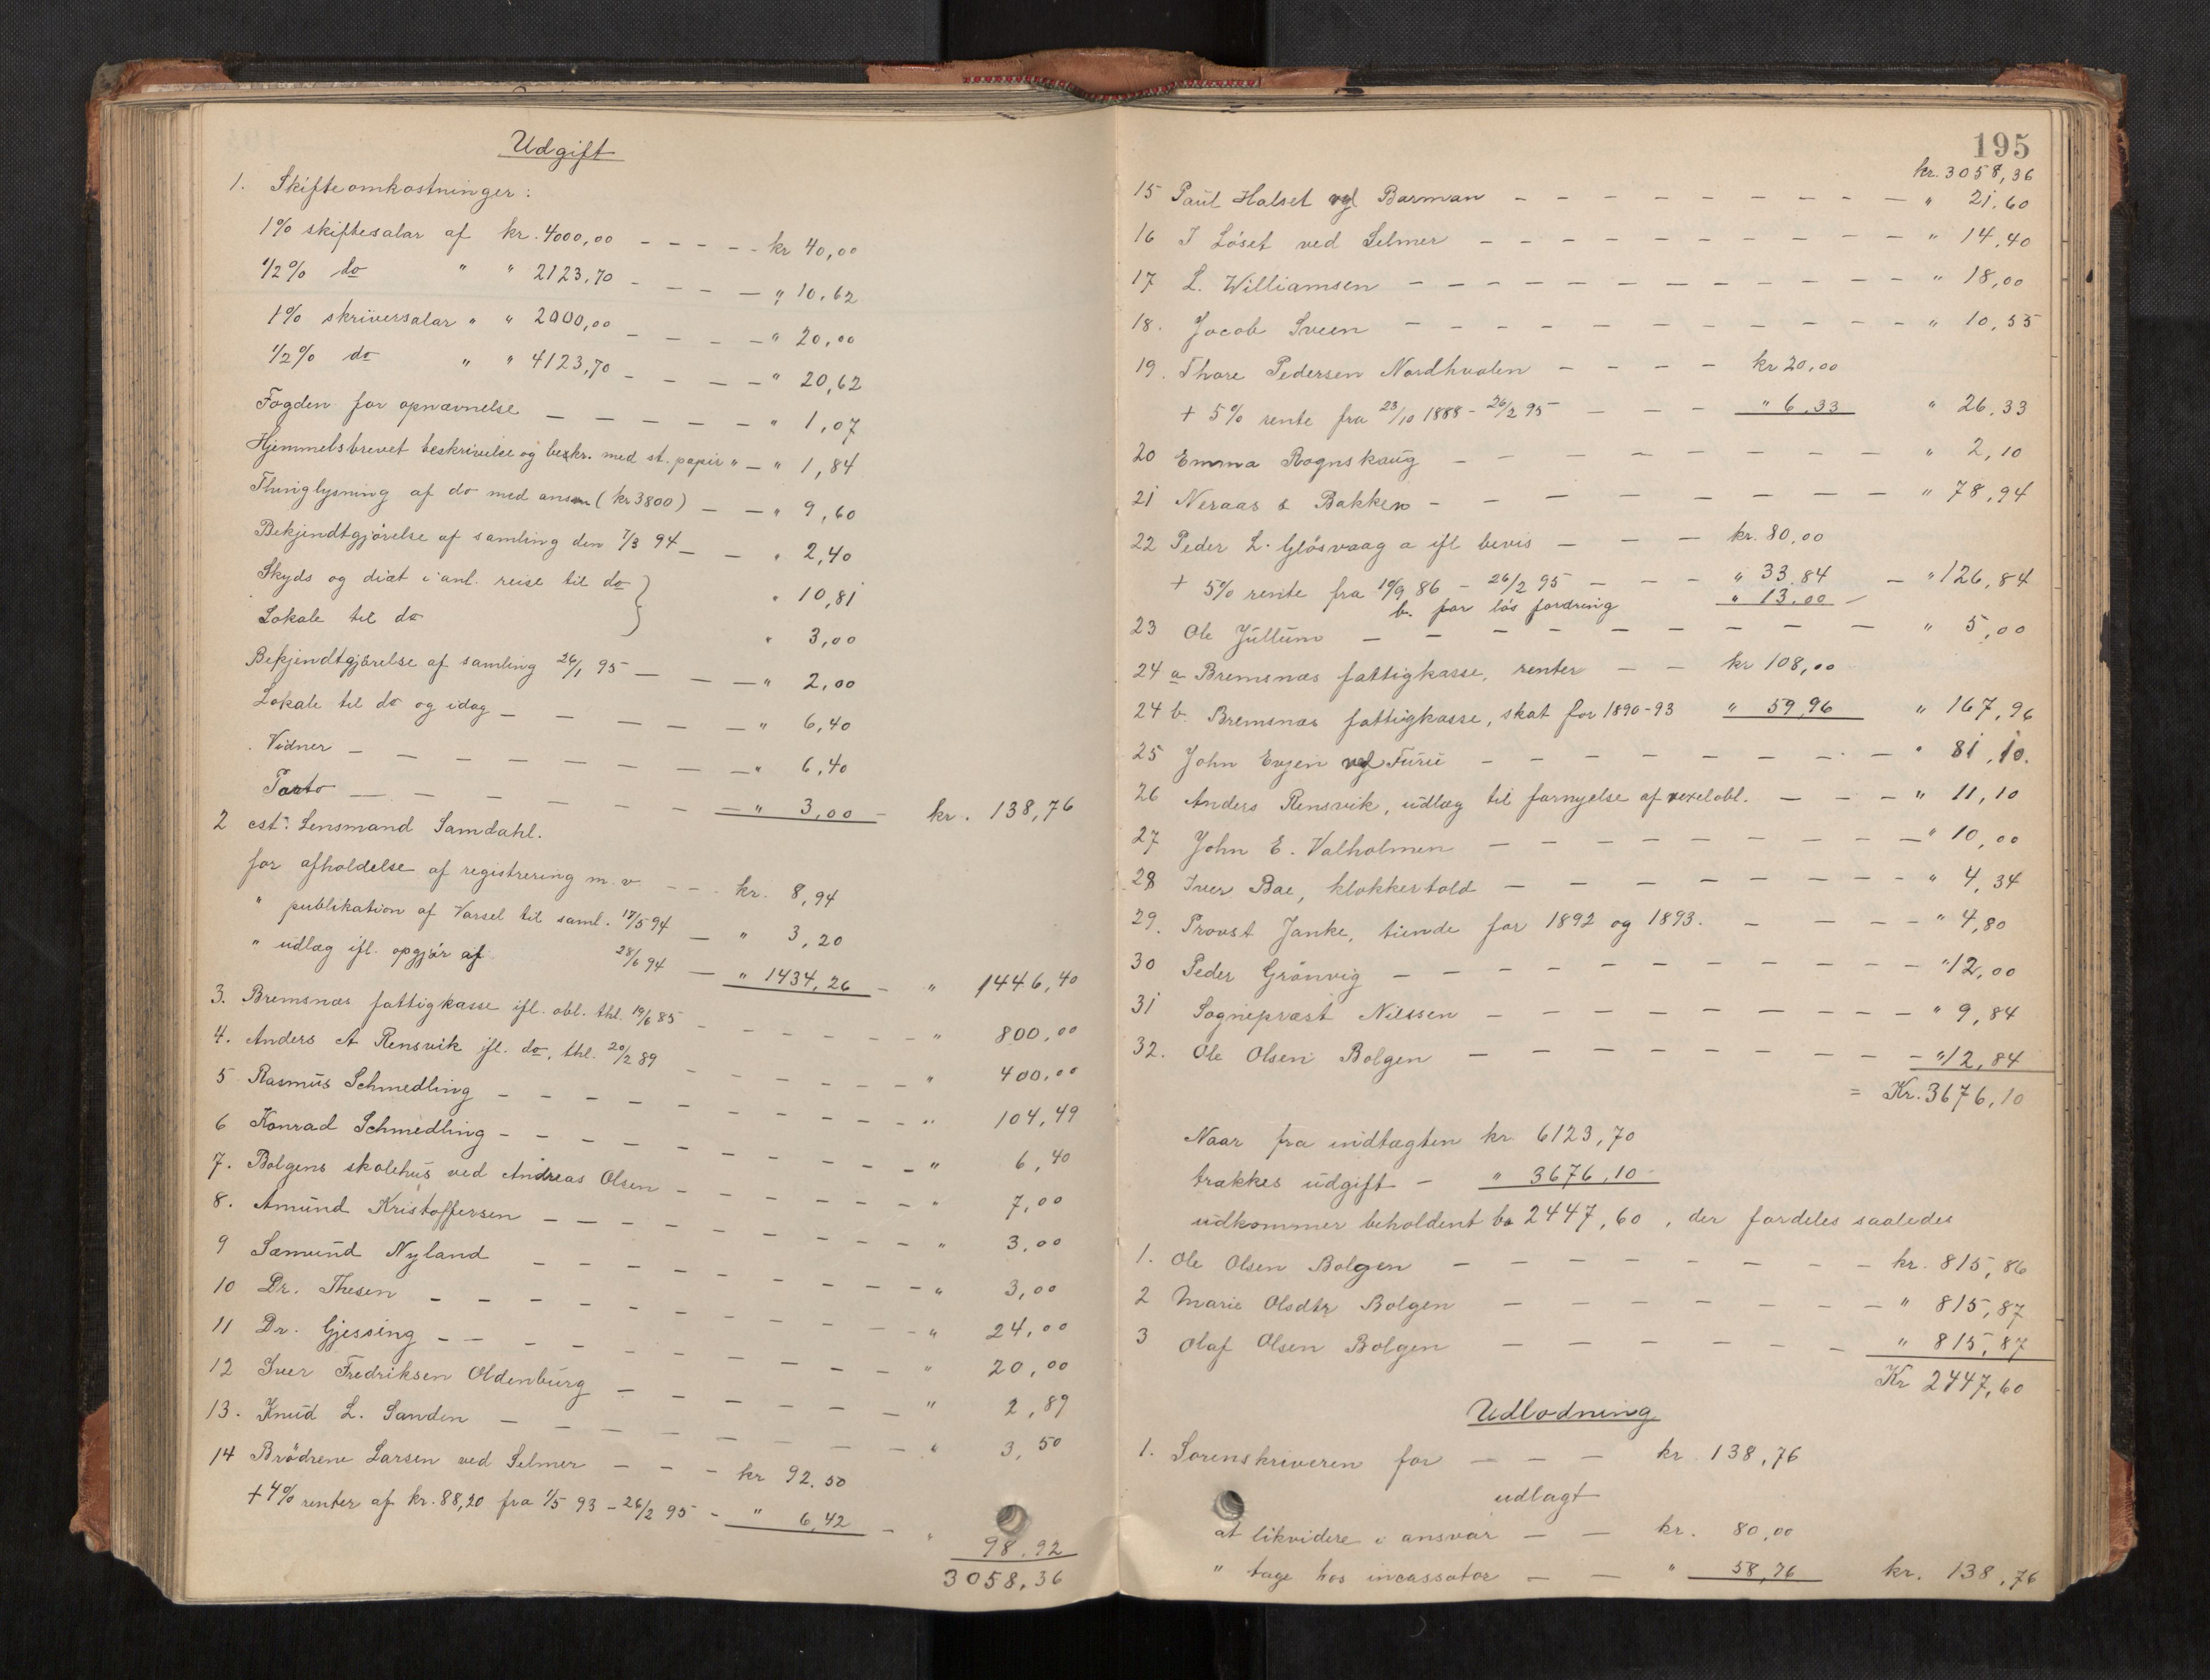 Udgift
1. Skifteomkostninger:
1% skiftesalar af kr. 4000,00 - - - - - kr 40,00
1/2% do " " 2123,70 - - - - " 10,62
1% skriversalar " " 2000,00 - - - - " 20,00
1/2% do " " 4123,70 - - - - " 20,62
Fogden for opnævnelse - - - - - " 1,07
Hjemmelsbrevet beskrivelse og beskr. med st. papir " - " 1,84
Thinglysning af do med ansvar (kr 3800) - - " 9,60
Bekjendtgjörelse af samling den 7/3 94 - - " 2,40
Skyds og diæt i anl. reise til do } " 10,81
Lokale til do } " 3,00
Bekjendtgjörelse af samling 26/1 95 - - - " 2,00
Lokale til do og idag - - - - - " 6,40
Vidner - - - - - - - - " 6,40
Porto - - - - - - - - " 3,00 - kr. 138,76
2 cst. Lensmand Samdahl.
for afholdelse af registrering m.v. - - - kr. 8,94
" publikation af Varsel til saml. 17/5 94 - " 3,20
" udlæg ifl. opgjör af 28/6 94 - " 1434,26 - " 1446,40
3. Bremsnæs fattigkasse ifl. obl. thl. 19/6 85 - - - - - - " 800,00
4. Anders A Rensvik ifl. do, thl. 20/2 89 - - - - - - " 400,00
5 Rasmus Schmedling - - - - - - - - - " 104,49
6 Konrad Schmedling - - - - - - - - - " 6,40
7. Bolgens skolehus ved Andreas Olsen - - - - - - " 7,00
8. Amund Kristoffersen - - - - - - - - " 3,00
9 Sæmund Nyland - - - - - - - - - " 3,00
10 Dr. Thesen - - - - - - - - - - " 24,00
11 Dr. Gjessing - - - - - - - - - - " 20,00
12 Iver Fredriksen Oldenburg - - - - - - " 2,89
13. Knud L. Sanden - - - - - - - - - " 3,50
14 Brödrene Larsen ved Selmer - - - kr 92,50
+ 4% renter af kr. 88,20 fra 1/5 93 - 26/2 95 - " 6,42 - " 98,92
3058,36
195
kr. 3058,36
15 Paul Halset ved Barman - - - - - - - - - - " 21,60
16 I Löset ved Selmer - - - - - - - - - - - " 14,40
17 L. Williamsen - - - - - - - - - - - - " 18,00
18. Jacob Sveen - - - - - - - - - - - - " 10,55
19. Thore Pedersen Nordhvalen - - - - kr 20,00
+ 5% rente fra 23/10 1888 - 26/2 95 - - - " 6,33 " 26,33
20 Emma Rognskaug - - - - - - - - - " 2,10
21 Neraas & Bakken - - - - - - - - - " 78,94
22 Peder L. Glösvaag a ifl bevis - - - kr. 80,00
+ 5% rente fra 10/9 86 - 26/2 95 - - - " 33,84 - " 126,84
b. for lös fordring " 13,00 -
23 Ole Jullum - - - - - - - - - - " 5,00
24 a Bremsnæs fattigkasse, renter - - kr 108,00
24 b. Bremsnæs fattigkasse, skat for 1890-93 " 59,96 " 167,96
25 John Evjen ved Furu - - - - - - - - - " 81,10.
26 Anders Rensvik, udlæg til fornyelse af vexelobl. - - - " 11,10
27 John E. Valholmen - - - - - - - - - " 10,00
28 Iver Bae, klokkertold - - - - - - - - - " 4,34
29. Provst Janke, tiende for 1892 og 1893. - - - - - " 4,80
30 Peder Grönvig - - - - - - - - - - - " 12,00
31 Sogneprest Nilssen - - - - - - - - - " 9,84
32. Ole Olsen Bolgen - - - - - - - - - - " 12,84
= Kr. 3676,10
Naar fra indtægten kr. 6123,70
trækkes udgift - " 3676,10
udkommer beholdent bo 2447,60, der fordeles saaledes
1. Ole Olsen Bolgen - - - - - - - - - kr. 815,86
2 Marie Olsdtr Bolgen - - - - - - - - " 815,87
3 Olaf Olsen Bolgen - - - - - - - " 815,87
Kr 2447,60
Udlodning
1. Sorenskriveren for - - - kr. 138,76
udlagt
at likvidere i ansvar - - kr. 80,00
" tage hos incassator - - " 58,76 kr. 138,76